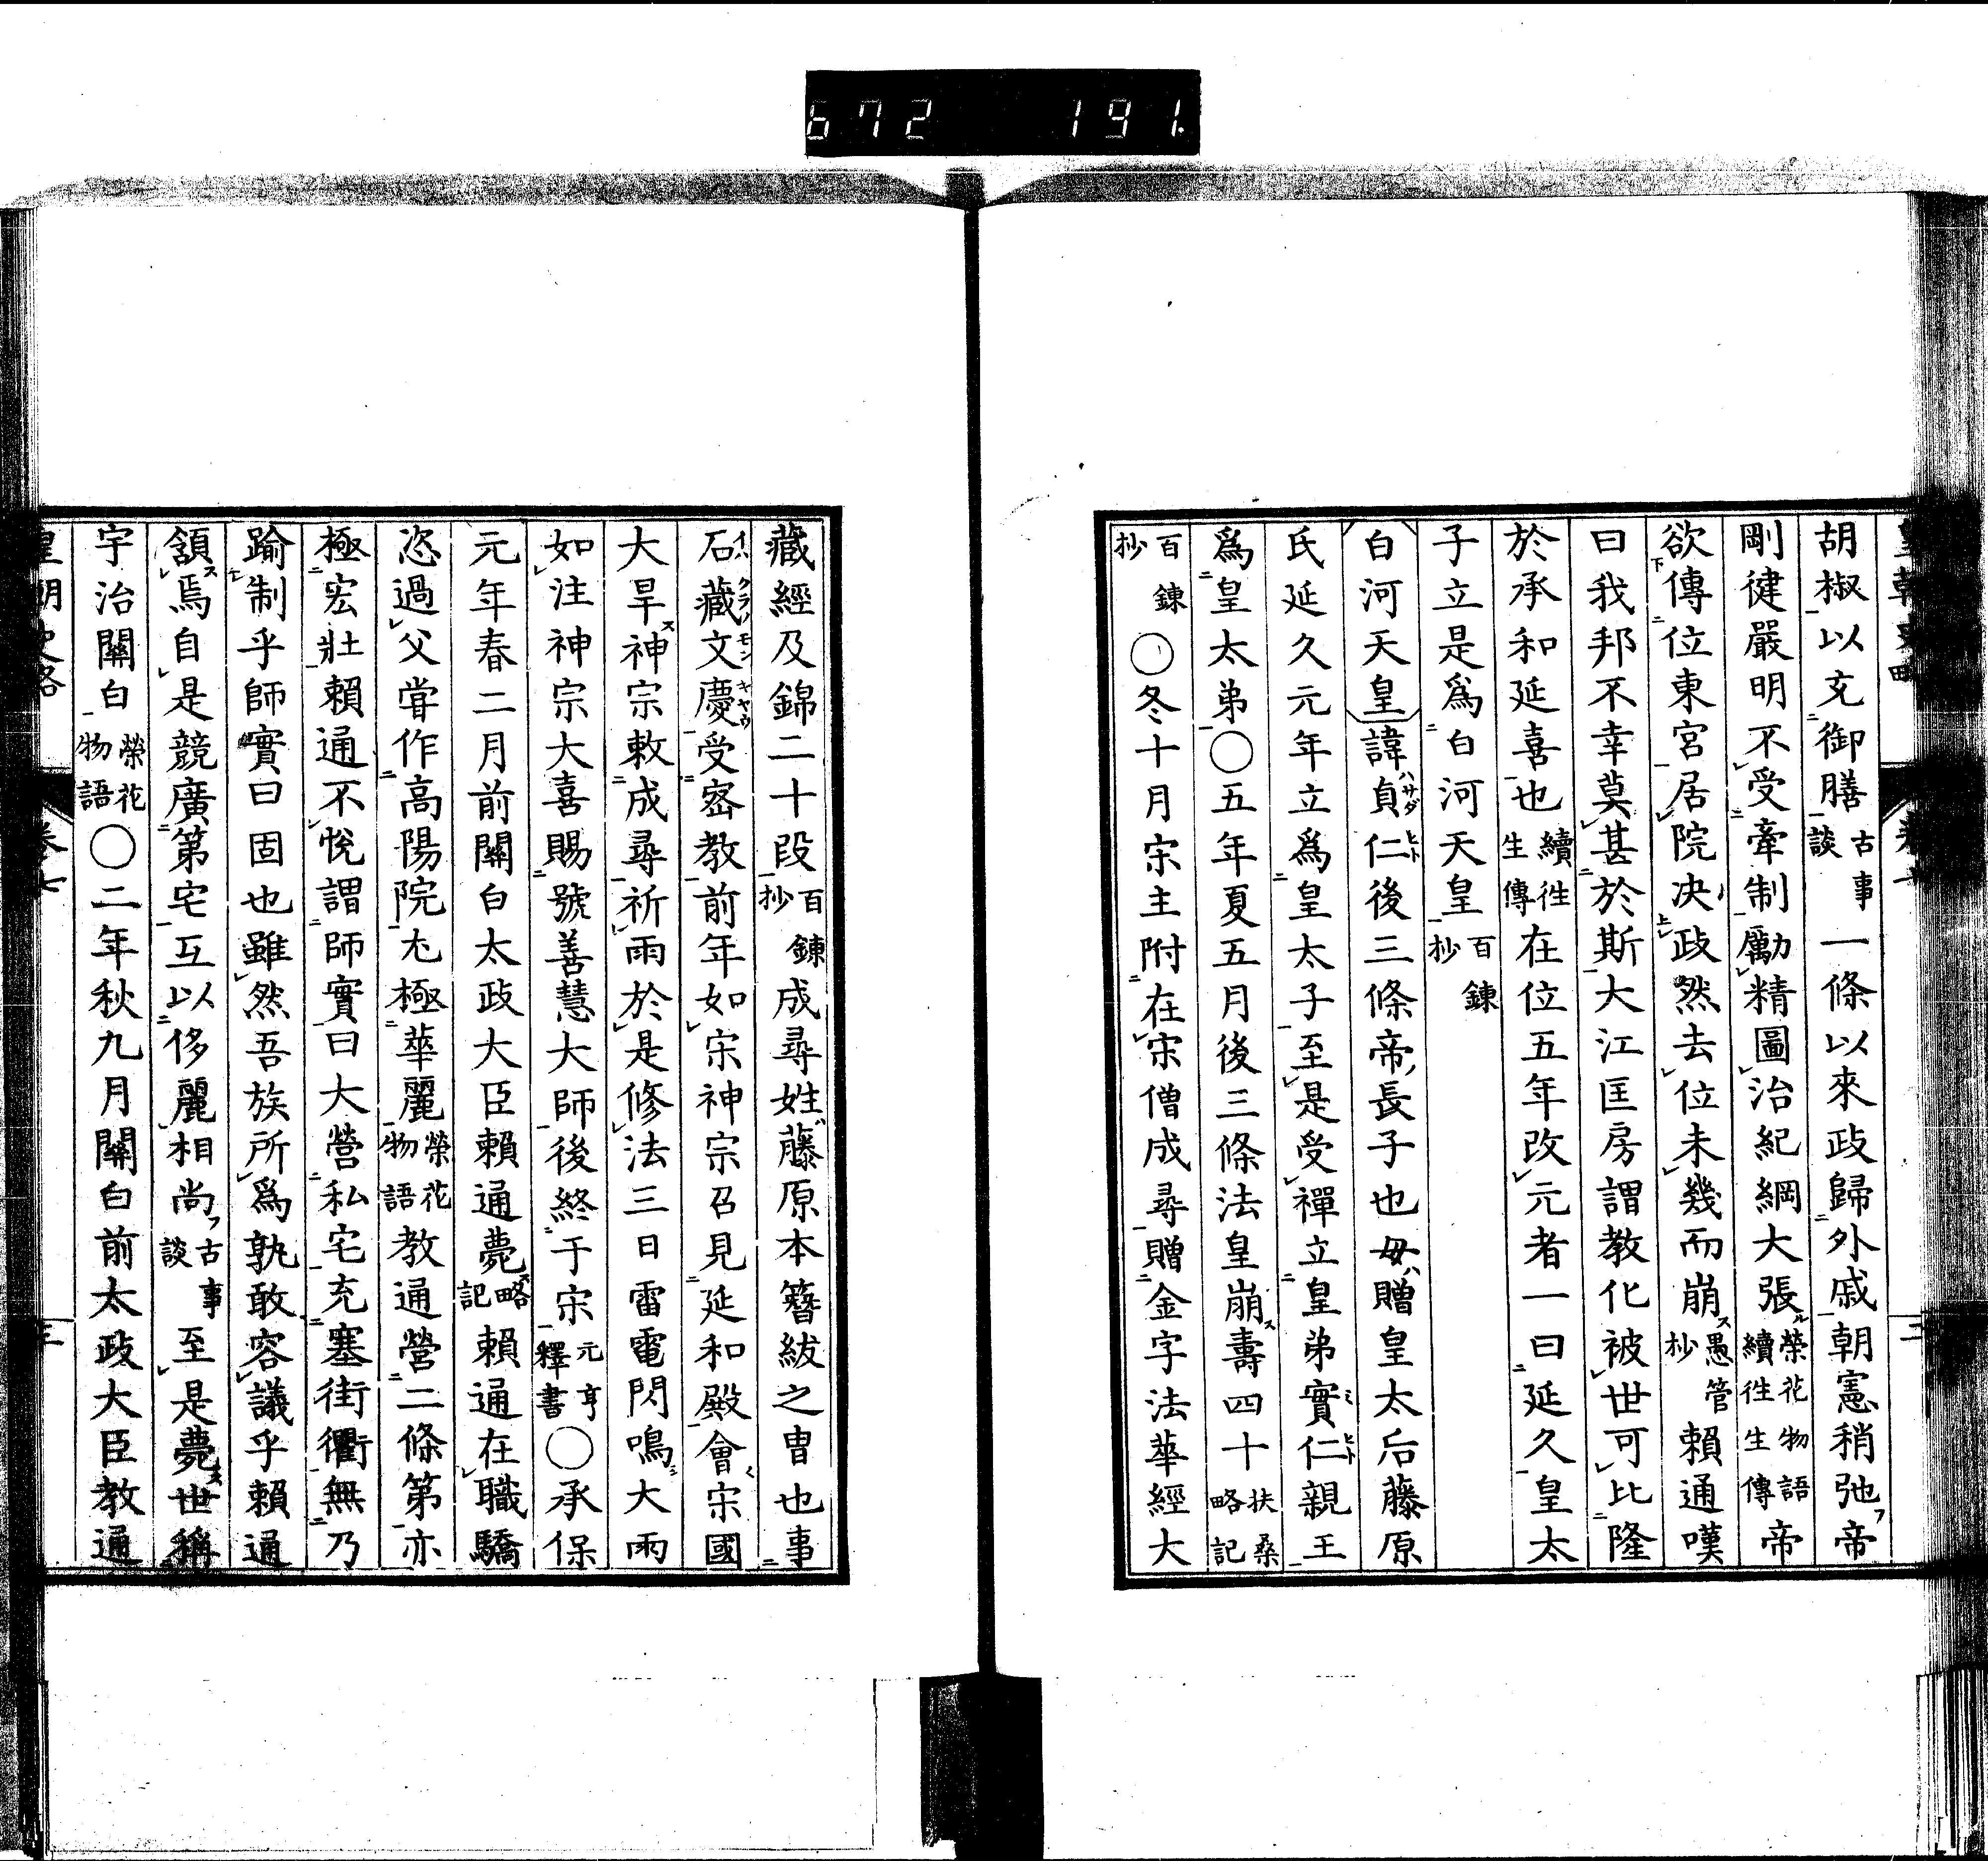 672 191.
胡椒以充御膳古事談一條以來政歸外戚朝憲稍弛帝
剛健嚴明不受牽制勵精圖治紀綱大張榮花物語續往生傳帝
欲傳位東宮居院决政然去位未幾而崩愚管抄賴通嘆
曰我邦不幸莫甚於斯大江匡房謂教化被世可比隆
於承和延喜也續往生傳在位五年改元者一曰延久皇太
子立是爲白河天皇百鍊抄
白河天皇諱貞仁後三條帝長子也母贈皇太后藤原
氏延久元年立爲皇太子至是受禪立皇弟實仁親王
爲皇太弟〇五年夏五月後三條法皇崩壽四十扶桑略記
百鍊抄〇冬十月宋主附在宋僧成尋贈金字法華經大
藏經及錦二十段百鍊抄成尋姓藤原本簪紱之冑也事
石藏文慶受密教前年如宋神宗召見延和殿會宋國
大旱神宗敕成尋祈雨於是修法三日雷電閃鳴大雨
如注神宗大喜賜號善慧大師後終于宋元亨釋書〇承保
元年春二月前關白太政大臣賴通薨略記賴通在職驕
恣過父嘗作高陽院尤極華麗榮花物語教通營二條第亦
極宏壯賴通不悅謂師實曰大營私宅充塞街衢無乃
踰制乎師實曰固也雖然吾族所爲孰敢容議乎賴通
頷焉自是競廣第宅互以侈麗相尚古事談至是薨世稱
宇治關白榮花物語〇二年秋九月關白前太政大臣教通
皇朝史略 卷七 三